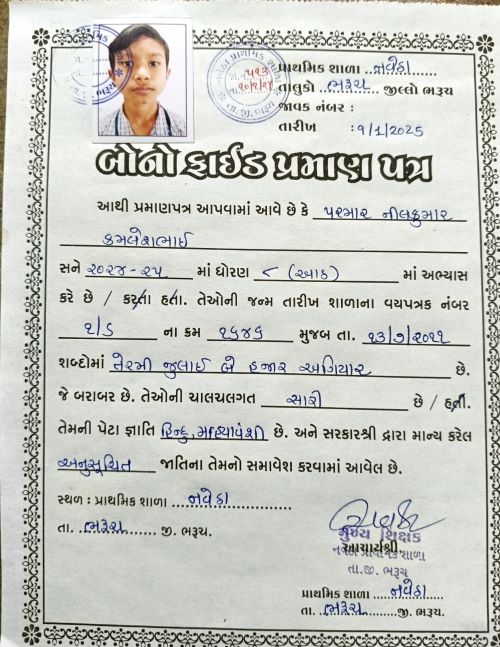 પ્રાથમિક શાળા નવેઠા
તાલુકો ભરૂચ જીલ્લો ભરૂચ
જાવક નંબર :
તારીખ : ૧/1/2025
બોનોફાઈડ પ્રમાણ પત્ર
આથી પ્રમાણપત્ર આપવામાં આવે છે કે પરમાર નીલકુમાર
કમલેશભાઈ
સને ૨૦૨૪-૨૫ માં ધોરણ ૮ (આઠ) માં અભ્યાસ
કરે છે / કરતા હતા. તેઓની જન્મ તારીખ શાળાના વયપત્રક નંબર
ના ક્રમ ૧૬૪૬ મુજબ તા. ૧૩/૭/૨૦૧૧
શબ્દોમાં તેરમી જુલાઈ બે હજાર અગિયાર છે.
જે બરાબર છે. તેઓની ચાલચલગત સારી છે / હતી.
તેમની પેટા જ્ઞાતિ હિન્દુ છે. અને સરકારશ્રી દ્વારા માન્ય કરેલ
અનુસૂચિત જાતિના તેમનો સમાવેશ કરવામાં આવેલ છે.
સ્થળ : પ્રાથમિક શાળા નવેઠા
તા. ભરૂચ જી. ભરૂચ.
મુખ્ય શિક્ષક
આચાર્યશ્રી,
નવેઠા પ્રાથમિક શાળા
તા.જી. ભરૂચ
પ્રાથમિક શાળા નવેઠા
તા. ભરૂચ જી. ભરૂચ.